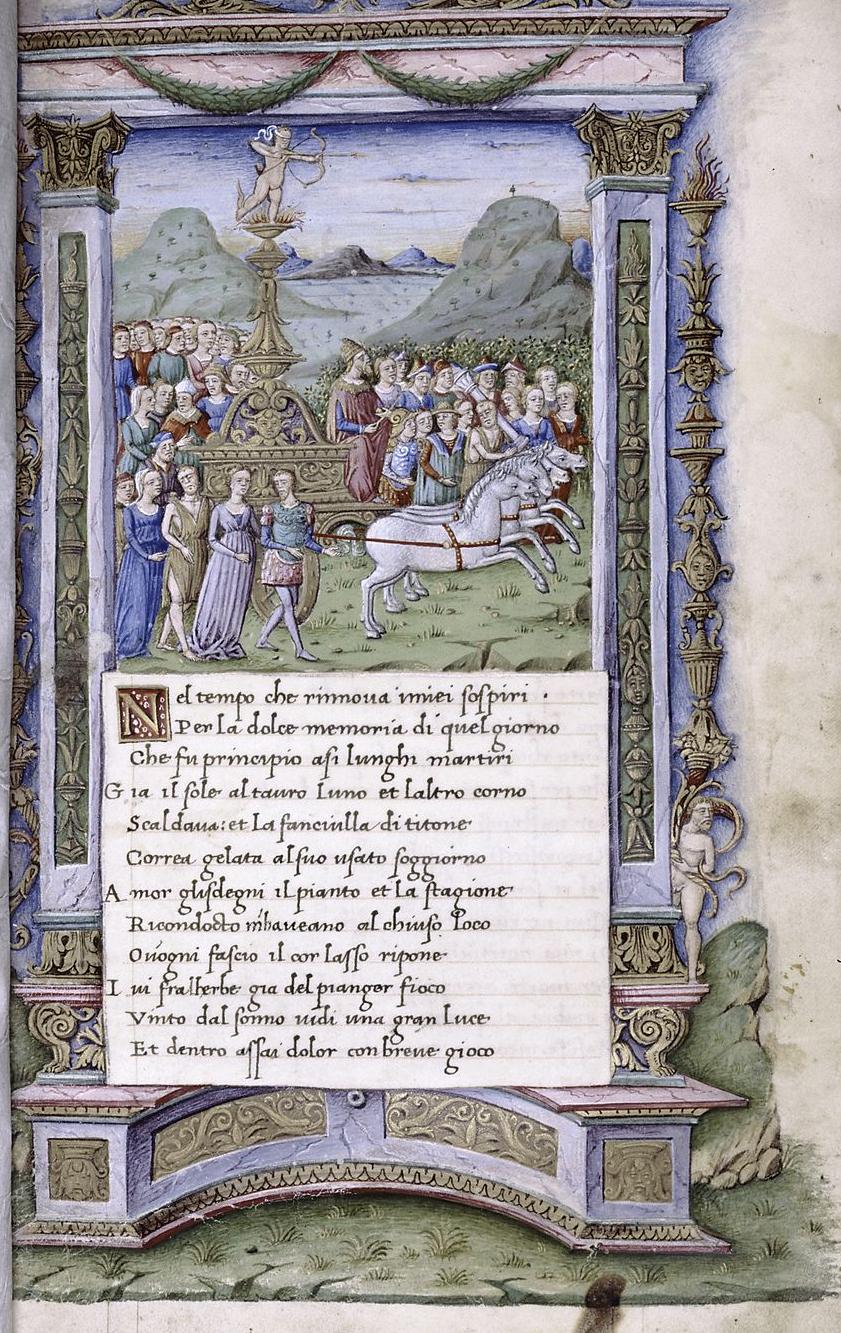 Nel tempo che rinnoua imiei sospiri ·
Per la dolce memoria di quel giorno
Che fu principio asi lunghi martiri
Gia il sole al tauro luno et laltro corno
Scaldaua: et la fanciulla di titone
Correa gelata al suo usato soggiorno
Amor glisdegni il pianto et la stagione
Ricondocto mhaueano al chiuso loco
Ouogni fascio il cor lasso ripone
Iui fralherbe gia del pianger fioco
Vinto dal sonno uidi una gran luce
Et dentro assai dolor con breue gioco